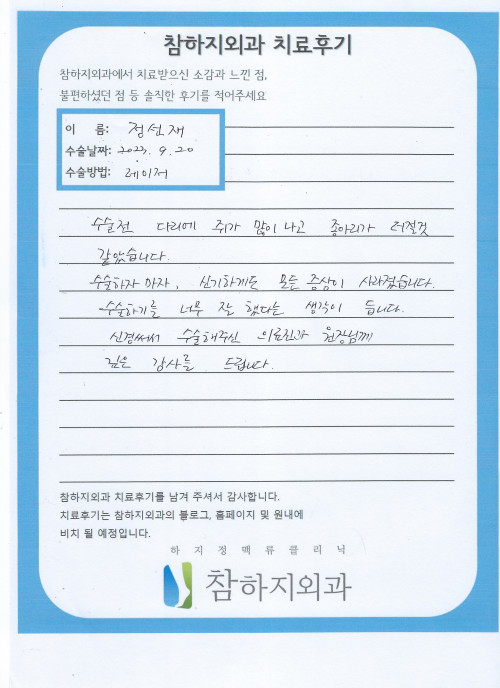 참하지외과 치료후기
참하지외과에서 치료받으신 소감과 느낀 점,
불편하셨던 점 등 솔직한 후기를 적어주세요
이 름: 정선재
수술날짜: 2023. 9. 20
수술방법: 레이저
수술전 다리에 쥐가 많이 나고 종아리가 터질것
같았습니다.
수술하자 마자, 신기하게도 모든 증상이 사라졌습니다.
수술하기를 너무 잘 했다는 생각이 듭니다.
신경써서 수술해주신 의료진과 원장님께
깊은 감사를 드립니다.
참하지외과 치료후기를 남겨 주셔서 감사합니다.
치료후기는 참하지외과의 블로그, 홈페이지 및 원내에
비치 될 예정입니다.
하지정맥류클리닉
참하지외과